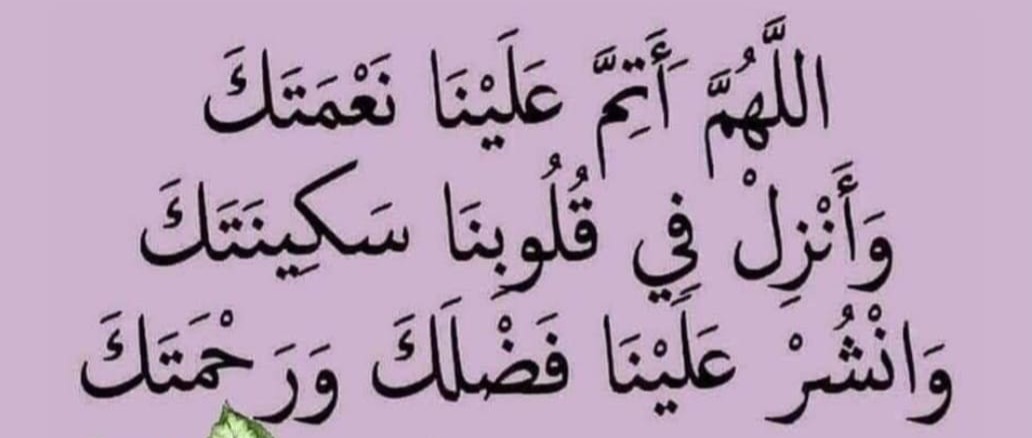 اللَّهُمَّ أَتِمَّ عَلَيْنَا نَعْمَتَكَ
وَأَنْزِلْ فِي قُلُوبِنَا سَكِينَتَكَ
وَانْشُرْ عَلَيْنَا فَضْلَكَ وَرَحْمَتَكَ